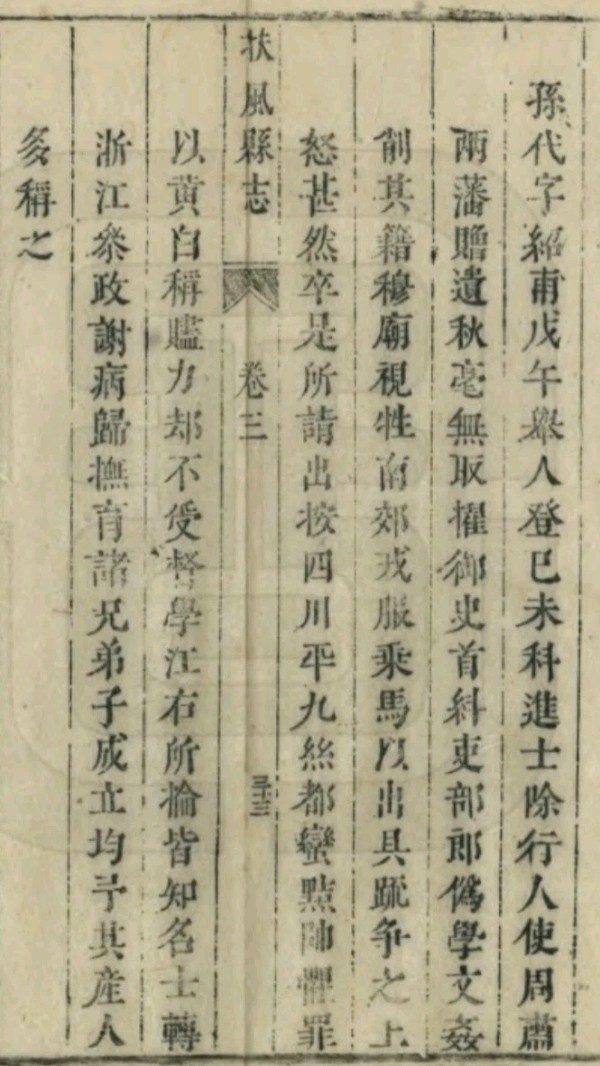 孫代字紹甫戊午舉人登巳未科進士除行人使周肅
兩藩贈遺秋毫無取擢御史首糾吏部郎僞學文姦
削其籍穆廟視牲南郊戎服乘馬以出具疏爭之上
怒甚然卒是所請出按四川平九絲都蠻黠帥懼罪
扶風縣志
卷三
三十三
以黃白稱贐力却不受督學江右所掄皆知名士轉
浙江叅政謝病歸撫育諸兄弟子成立均予其產人
多稱之